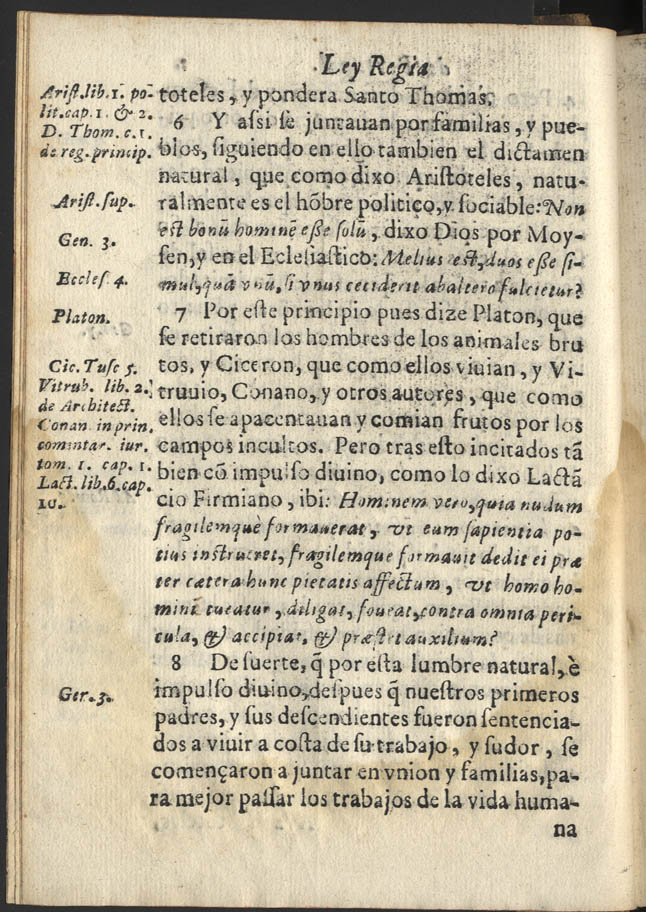 Ley Regia
Arist. lib. 1. po-
lit. cap. 1. & 2.
D. Thom. c. 1.
de reg. princip.
toteles, y pondera Santo Thomas.
6 Y assi se juntauan por familias, y pue-
blos, siguiendo en ello tambien el dictamen
natural, que como dixo Aristoteles, natu-
Arist. sup.
ralmente es el hõbre politico, y sociable: Non
est bonũ hominẽ eße solũ, dixo Dios por Moy-
Gen. 3.
sen, y en el Eclesiastico: Melius est, duos eße si-
Eccles. 4.
mul, quã vnũ, si vnus ceciderit ab altero fulcietur?
Platon.
7 Por este principio pues dize Platon, que
se retiraron los hombres de los animales bru
Cic. Tusc 5.
Vitrub. lib. 2.
de Architect.
Conan. in prin.
comentar. iur.
tom. 1. cap. 1.
Lact. lib. 6. cap.
10.
tos, y Ciceron, que como ellos viuian, y Vi-
truuio, Conano, y otros autores, que como
ellos se apacentauan y comian frutos por los
campos incultos. Pero tras esto incitados tã
bien cõ impulso diuino, como lo dixo Lactã
cio Firmiano, ibi: Hominem vero, quia nudum
fragilemque formauerat, vt eum sapientia po-
tius instrueret, fragilemque formauit dedit ei præ
ter cætera hunc pietatis affectum, vt homo ho-
minẽ tueatur, diligat, foueat, contra omnia peri-
cula, & accipiat, & præstet auxilium?
8 De suerte, q̃ por esta lumbre natural, è
Ger. 3.
impulso diuino, despues q̃ nuestros primeros
padres, y sus descendientes fueron sentencia-
dos a viuir a costa de su trabajo, y sudor, se
començaron a juntar en vnion y familias, pa-
ra mejor passar los trabajos de la vida huma-
na